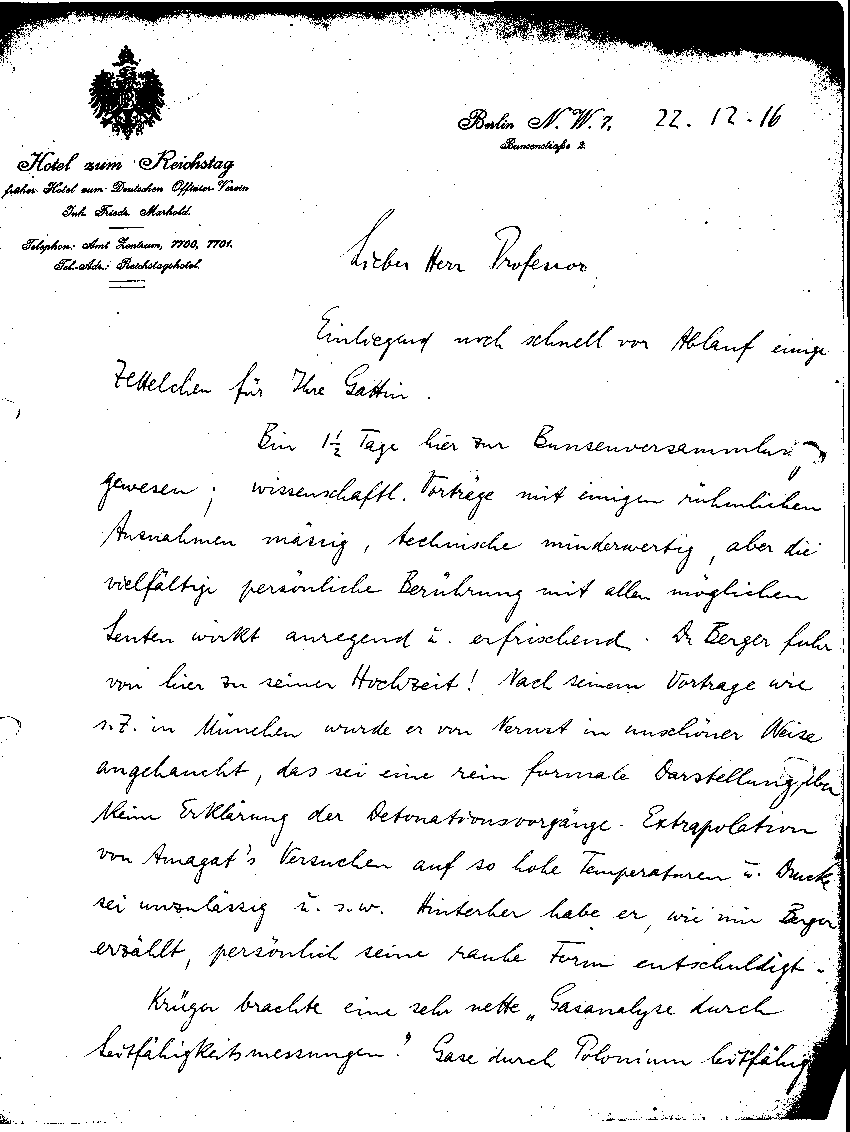 Berlin N. W. 7, 22.12.16
Bunsenstraße 2.
Hotel zum Reichstag
früher Hotel zum Deutschen Offizier-Verein
Inh. Friedr. Marhold.
Telephon: Amt Zentrum, 7700, 7701.
Tel.-Adr.: Reichstagshotel.
Lieber Herr Professor
Einliegend noch schnell vor Ablauf einige
Zettelchen für Ihre Gattin.
Bin 1½ Tage hier zur Bunsenversammlung
gewesen; wissenschaftl. Vorträge mit einigen rühmlichen
Ausnahmen mässig, technische minderwertig, aber die
vielfältige persönliche Berührung mit allen möglichen
Leuten wirkt anregend u. erfrischend. Dr Berger fuhr
von hier zu seiner Hochzeit! Nach seinem Vortrage wie
s.Z. in München wurde er von Nernst in unschöner Weise
angehaucht, das sei eine rein formale Darstellung, aber
keine Erklärung der Detonationsvorgänge. Extrapolation
von Amagat's Versuchen auf so hohe Temperaturen u. Drucke
sei unzulässig u. s. w. Hinterher habe er, wie mir Berger
erzählt, persönlich seine rauhe Form entschuldigt.
Krüger brachte eine sehr nette „Gasanalyse durch
Leitfähigkeitsmessungen." Gase durch Polonium leitfähig